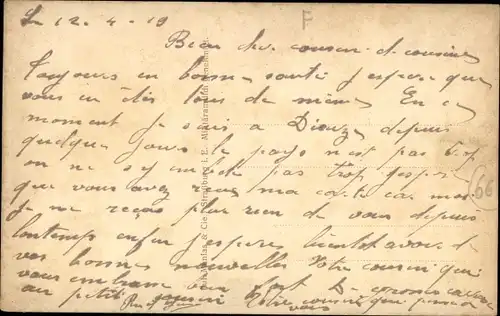 Le 12-4-19
Bien cher cousin et cousine
Toujours en bonne santé j espere que
vous en etes tous de memes En ce
moment je suis a Dieuze depuis
quelque jours le pays n est pas
on ne s y pas trop j espere
que vous avez reçus ma carte car moi
je ne reçois plus rien de vous depuis
lontemps enfin j espere bientot avoir de
vos bonnes nouvelles Votre cousin qui
vous embrasse bien fort
au petit cousin Votre cousin qui pense a
vous
& Cie Strassburg i. E.
F
66